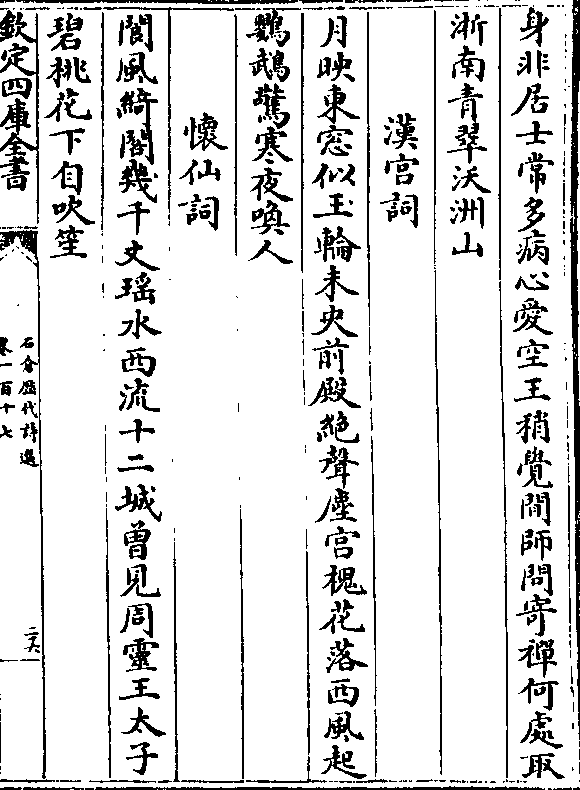 身非居士常多病心愛空王稍覺閒師問寄禪何處取
浙南青翠沃洲山
漢宮詞
月映東窓似玉輪未央前殿絶聲塵宮槐花落西風起
鸚鵡驚寒夜喚人
懐仙詞
閬風綺閣幾千丈瑶水西流十二城曽見周靈王太子
碧桃花下自吹笙
欽定四庫全書
石倉歴代詩選
卷一百十七
二六